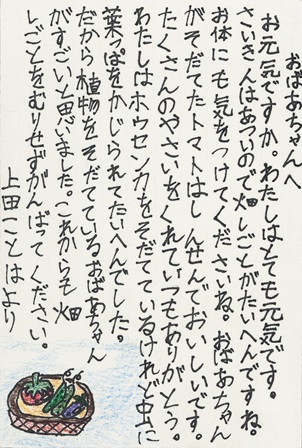 おばあちゃんへ
お元気ですか。わたしはとても元気です。
さいきんはあついので畑しごとがたいへんですね。
お体にも気をつけてくださいね。おばあちゃん
がそだてたトマトはしんせんでおいしいです。
たくさんのやさいをくれていつもありがとう
わたしはホウセンカをそだてているけれど虫に
葉っぱをかじられてたいへんでした。
だから植物をそだてているおばあちゃん
がすごいと思いました。これからも畑
しごとをむりせずがんばってください。
上田ことはより